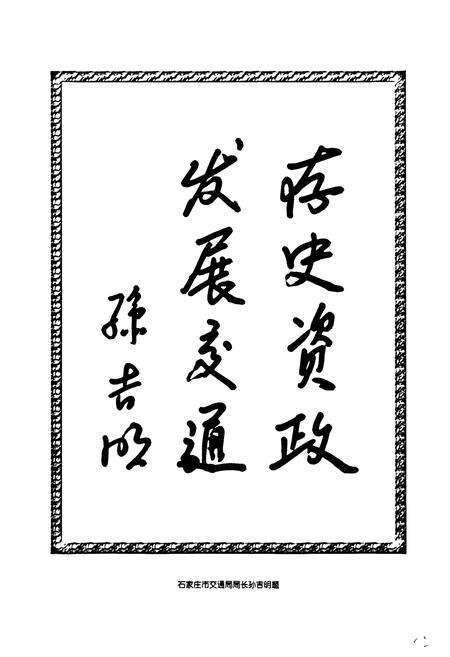 存史资政
发展交通
孫吉明
石家庄市交通局局长孙吉明题